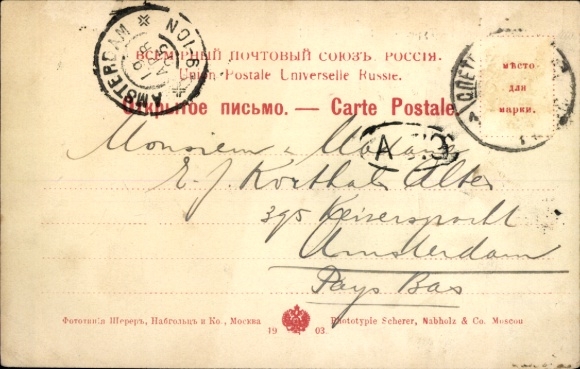 ВСЕМІРНЫЙ ПОЧТОВЫЙ СОЮЗЪ. РОССІЯ.
Union Postale Universelle Russie.
Открытое письмо. — Carte Postale
мѣсто
для
марки.
AMSTERDAM
Monsieur & Madame
E. J. Korthals Altes
395 Keizersgracht
Amsterdam
Pays Bas
Фототипія Шереръ, Набгольцъ и Ко., Москва
1903.
Phototypie Scherer, Nabholz & Co. Moscou